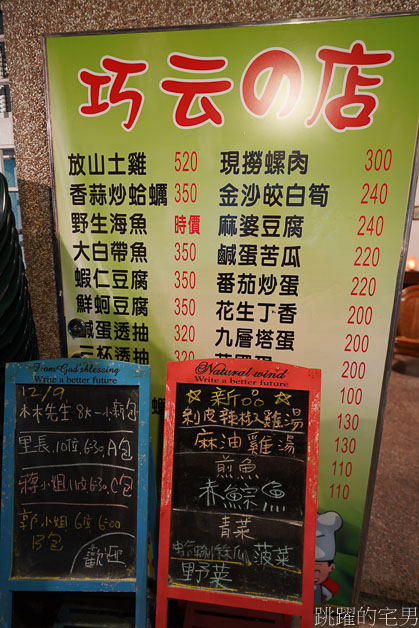 巧云の店
放山土雞 520
香蒜炒蛤蠣 350
野生海魚 時價
大白帶魚 350
蝦仁豆腐 350
鮮蚵豆腐 350
鹹蛋透抽 320
三杯透抽 320
現撈螺肉 300
金沙皎白筍 240
麻婆豆腐 240
鹹蛋苦瓜 220
番茄炒蛋 220
花生丁香 200
九層塔蛋 200
200
100
130
130
110
110
From God's blessing
Write a better future
12/9
林先生 8大一小 新包
里長 10位 6:30 A包
蔣小姐 11位 6:30 C包
郭小姐 6位 6:00
B包
歡迎
Natural wind
Write a better future
☆新品☆
剝皮辣椒雞湯
麻油雞湯
煎魚
赤鯮魚
青菜
蛤蜊絲瓜 菠菜
野菜
跳躍的宅男